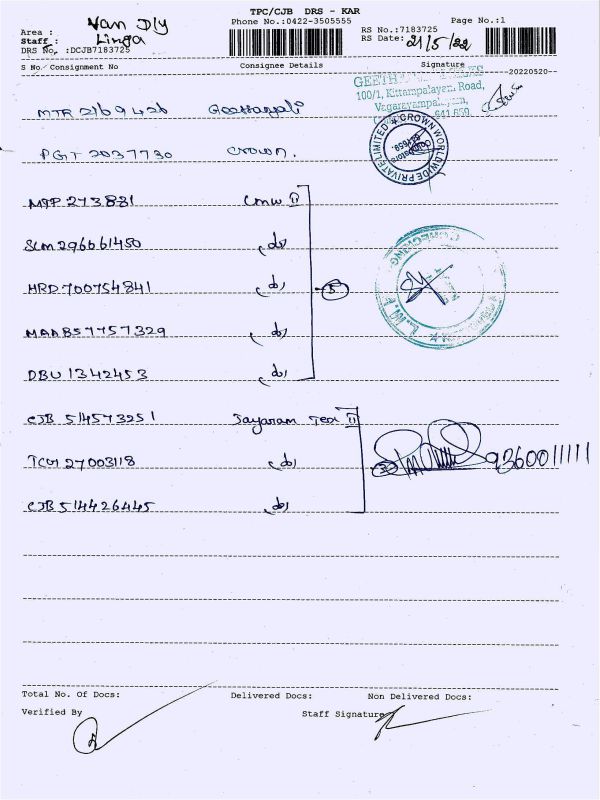 TPC/CJB DRS - KAR
Phone No.:0422-3505555
Page No.:1
Area : Van Dly
Staff : Linga
DRS No. :DCJB7183725
RS No.:7183725
RS Date: 21/5/22
S No/ Consignment No Consignee Details Signature
--20220520--
100/1, Kittampalayam Road,
641 659.
MTR 2169426 Geethanjali
CROWN WORLDWIDE PRIVATE LIMITED
PGT 2037730 crown.
MTP 273881 LMW II
SLM 296061450 do
HRD 700754841 do 5
MAA857757329 do
DBU 1342453 do
CJB 514573251 Jayaram Tex II
TCG 27003118 do 3 9360011111
CJB 514426445 do
Total No. Of Docs: Delivered Docs: Non Delivered Docs:
Verified By Staff Signature